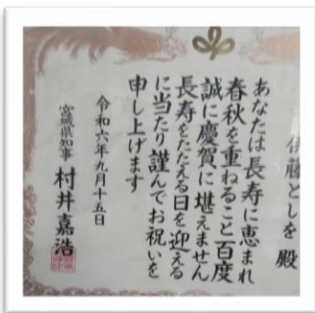 伊藤としを 殿
あなたは長寿に恵まれ
春秋を重ねること百度
誠に慶賀に堪えません
長寿をたたえる日を迎える
に当たり謹んでお祝いを
申し上げます
令和六年九月十五日
宮城県知事 村井嘉浩